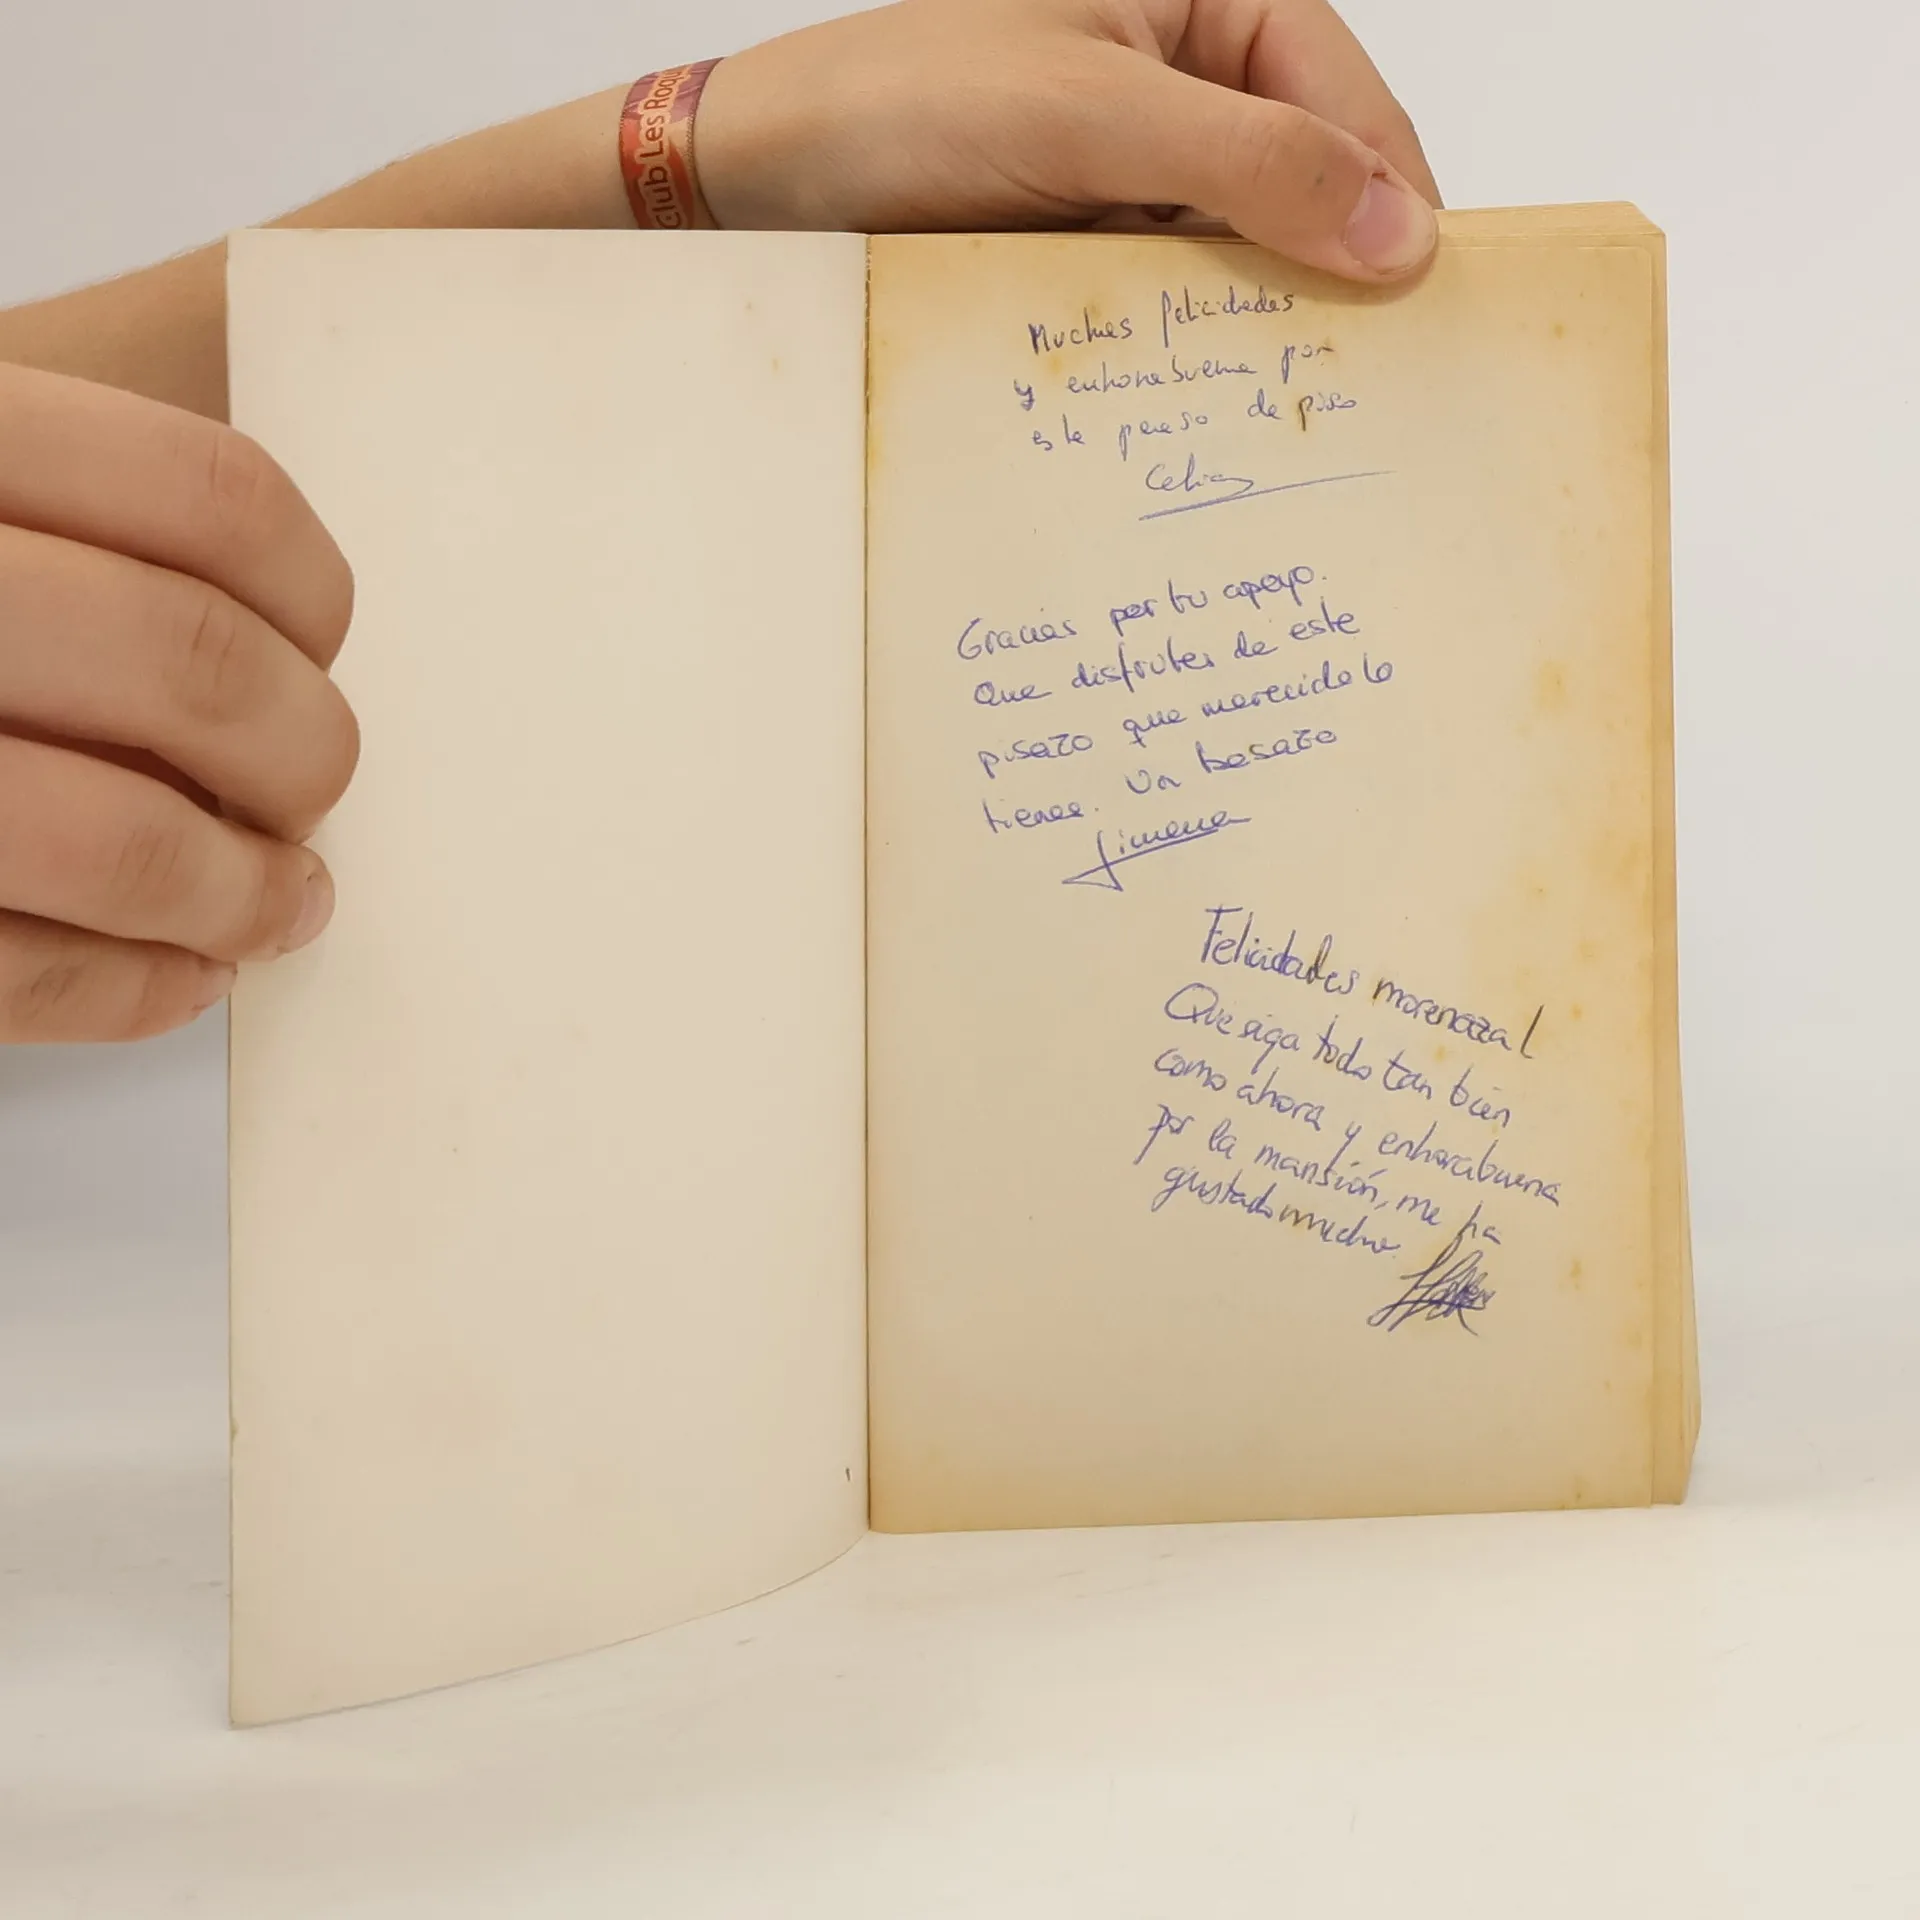 Club Les Roqu
Muchas felicidades
y enhorabuena por
este de piso
Celia
Gracias por tu apoyo.
Que disfrutes de este
pisazo que merecido lo
tienes. Un besazo
Jimena
Felicidades morenaza!
Que siga todo tan bien
como ahora y enhorabuena
por la mansión, me ha
gustado mucho.